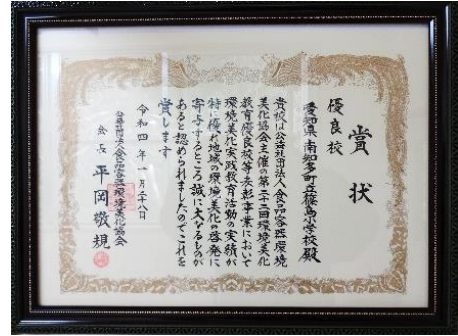 賞状
優良校
愛知県南知多町立篠島小学校殿
貴校は公益社団法人食品容器環境
美化協会主催の第二十二回環境美化
教育優良校等表彰事業において
環境美化実践教育活動の実績が
特に優れ地域の環境美化の啓発に
寄与するところ誠に大なるものが
あると認められましたのでこれを
賞します
令和四年一月二十八日
公益社団法人食品容器環境美化協会
会長 平岡敬規